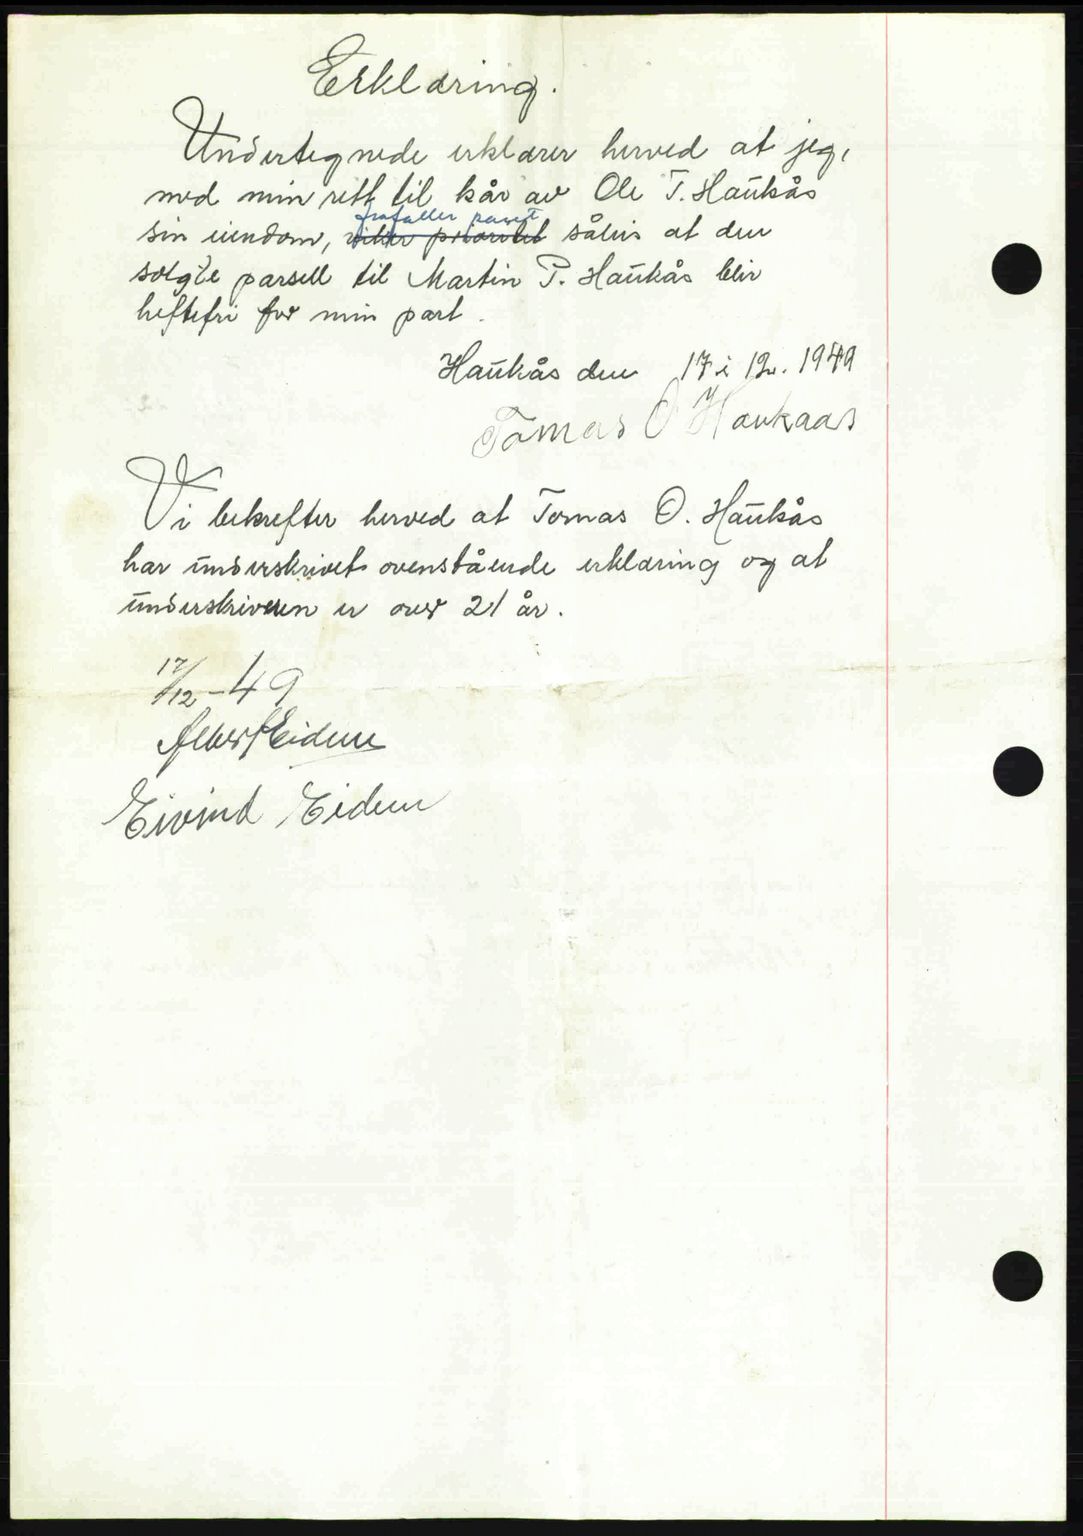 Erklæring.
Undertegnede erklærer herved at jeg,
med min rett til kår av Ole T. Haukås
frafaller panet
sin eiendom, viker prioritet såleis at den
solgte parsell til Martin P. Haukås blir
heftefri for min part.
Haukås den 17 i 12. 1949
Tomas O Haukaas
Vi bekrefter herved at Tomas O. Haukås
har underskrivet ovenstående erklæring og at
underskriveren er over 21 år.
17/12 - 49
Albert Eidem
Eivind Eidem